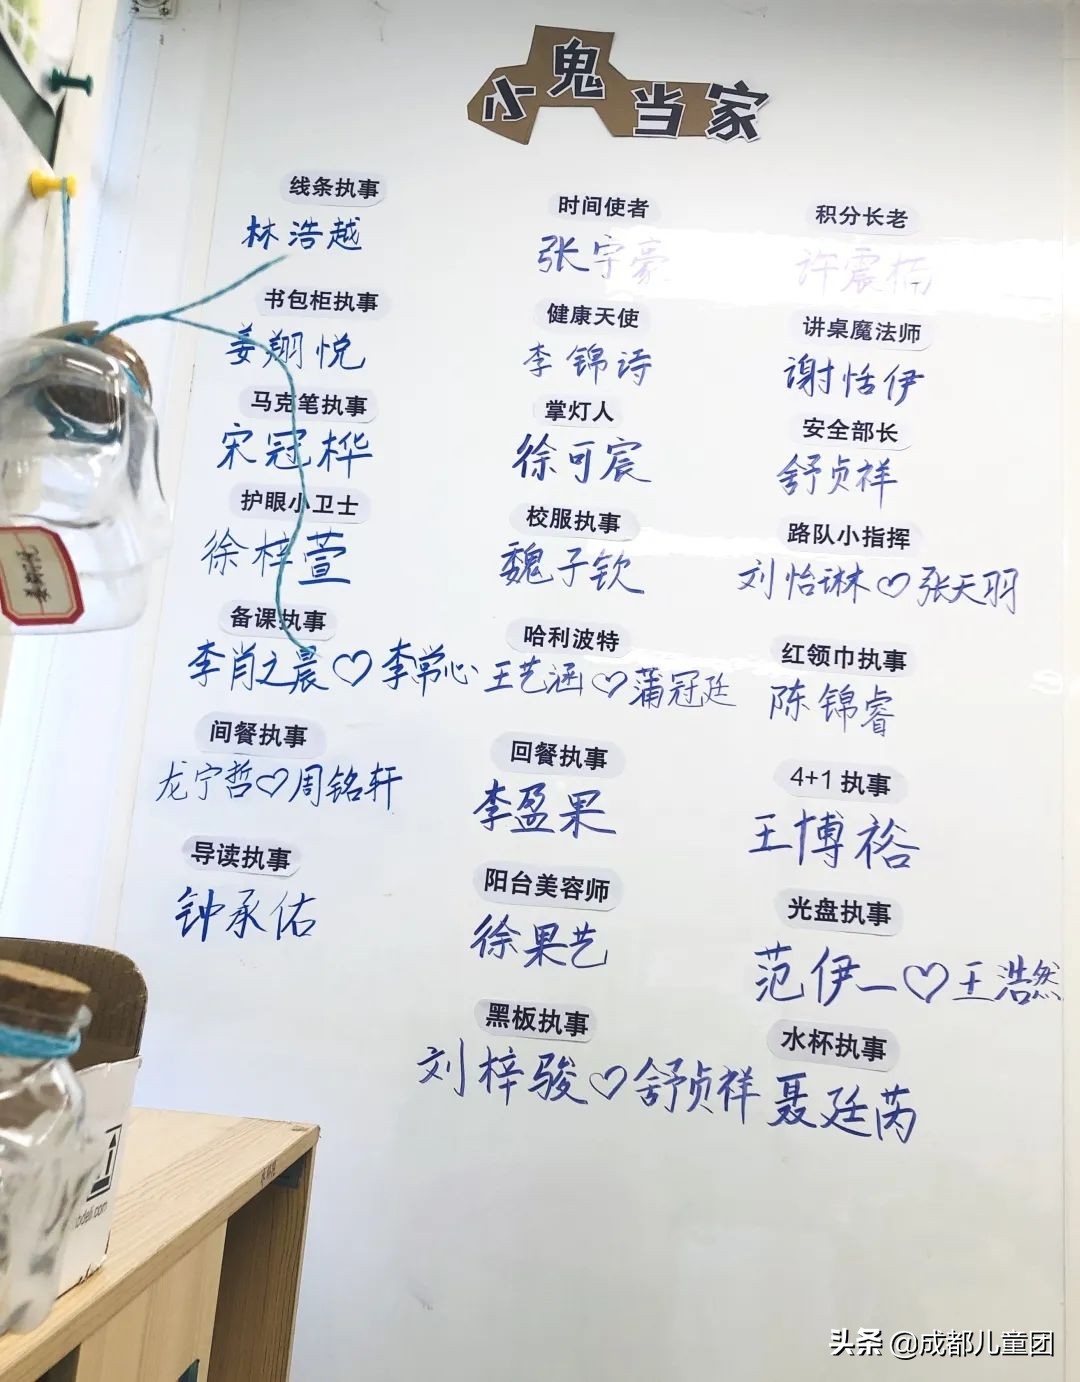 小鬼当家
线条执事
林浩越
书包柜执事
姜翔悦
马克笔执事
宋冠桦
护眼小卫士
徐梓萱
备课执事
李肖之晨♡李常心
间餐执事
龙宁哲♡周铭轩
导读执事
钟承佑
时间使者
张宇豪
健康天使
李锦诗
掌灯人
徐可宸
校服执事
魏子钦
哈利波特
王艺涵♡蒲冠廷
回餐执事
李盈果
阳台美容师
徐果艺
黑板执事
刘梓骏♡舒贞祥
积分长老
许震楠
讲桌魔法师
谢恬伊
安全部长
舒贞祥
路队小指挥
刘怡琳♡张天羽
红领巾执事
陈锦睿
4+1 执事
王博裕
光盘执事
范伊一♡王浩然
水杯执事
聂廷芮
deli.com
头条 @成都儿童团